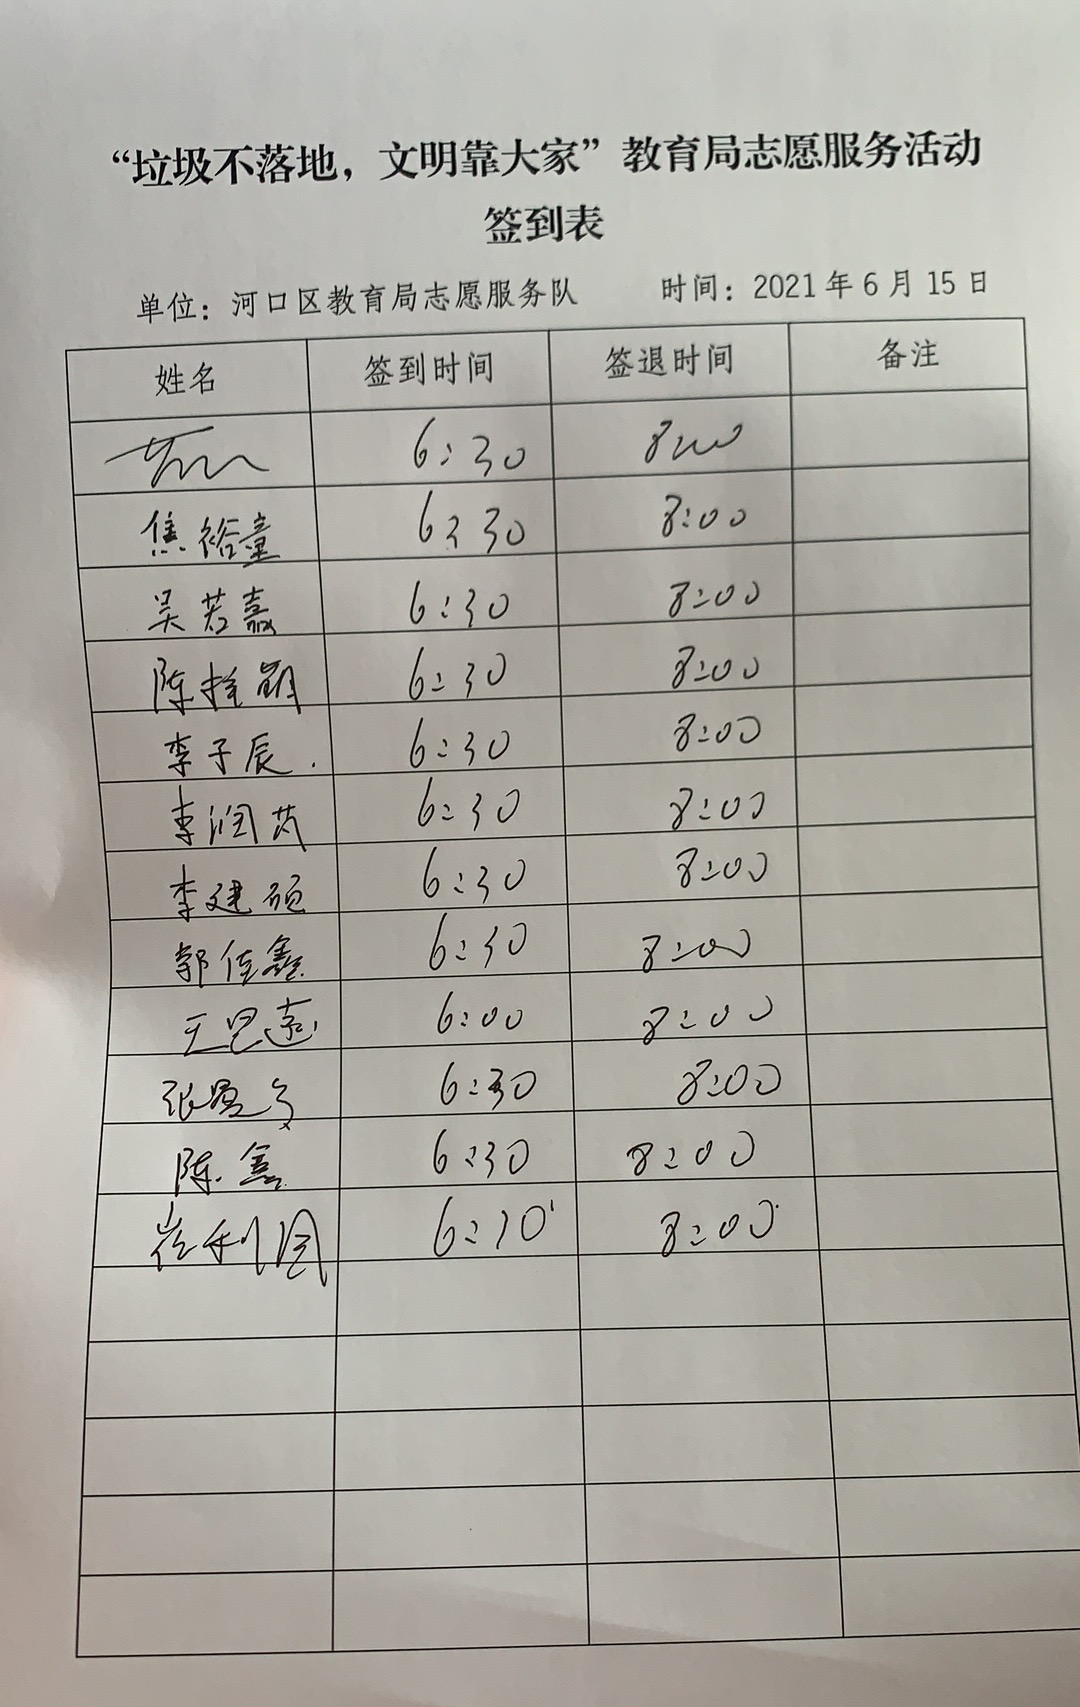 “垃圾不落地，文明靠大家”教育局志愿服务活动
签到表
单位：河口区教育局志愿服务队 时间：2021年6月15日
姓名 签到时间 签退时间 备注
6:30 8:00
焦裕童 6:30 8:00
吴若嘉 6:30 8:00
陈 6:30 8:00
李子辰. 6:30 8:00
李润芮 6:30 8:00
李建硕 6:30 8:00
郭佳鑫 6:30 8:00
王思远 6:00 8:00
张 6:30 8:00
陈鑫 6:30 8:00
崔利国 6:10 8:00